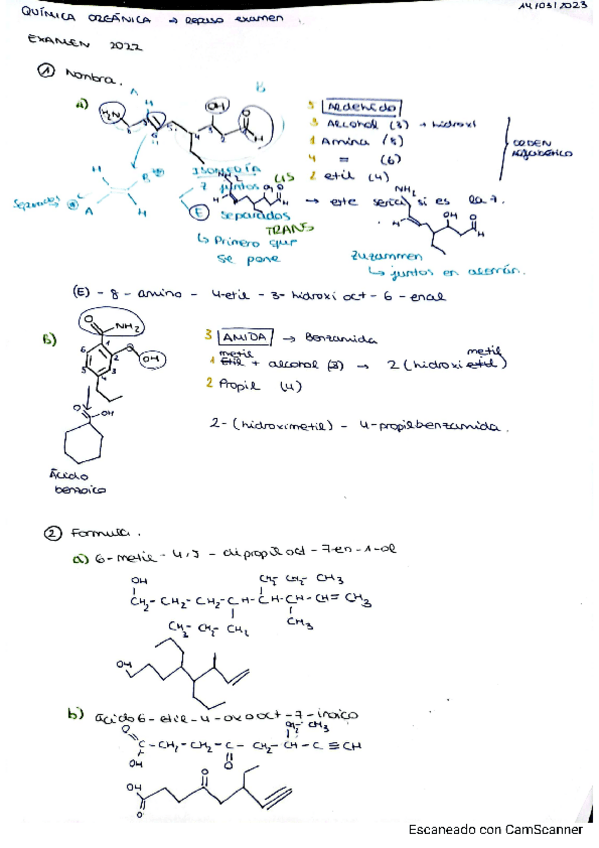 QUÍMICA ORGÁNICA → Repaso examen
14/03/2023
EXAMEN 2022
① Nombra.
a)
H₂N
OH
O
H
A
B
5 Aldehido
3 Alcohol (3) → hidroxi
1 Amina (8)
4 = (6)
2 etil (4)
ORDEN ALFABÉTICO
ISOMERÍA
7 juntos
CIS
E separados
TRANS
↳ Primero que se pone
Separados
→ este sería si es la Z.
Zuzammen
↳ juntos en alemán.
(E) - 8 - amino - 4-etil - 3- hidroxi oct - 6 - enal
b)
O
NH₂
OH
3 AMIDA → Benzamida
metil
1 etil + alcohol (2) → 2 (hidroxi etil) metil
2 Propil (4)
2-(hidroximetil) - 4-propilbenzamida.
Ácido benzoico
② Formula.
a) 6-metil - 4,5 - dipropil oct - 7en - 1-ol
OH CH₂ CH₂ CH₃
CH₂ - CH₂ - CH₂ - CH - CH - CH - CH = CH₃
CH₃ CH₂ CH₂ CH₃
OH
b) ácido 6 - etil - 4 - oxooct - 7 - inoico
CH₂ - CH₃
O
C - CH₂ - CH₂ - C - CH₂ - CH - C ≡ CH
OH O
OH O
O
Escaneado con CamScanner